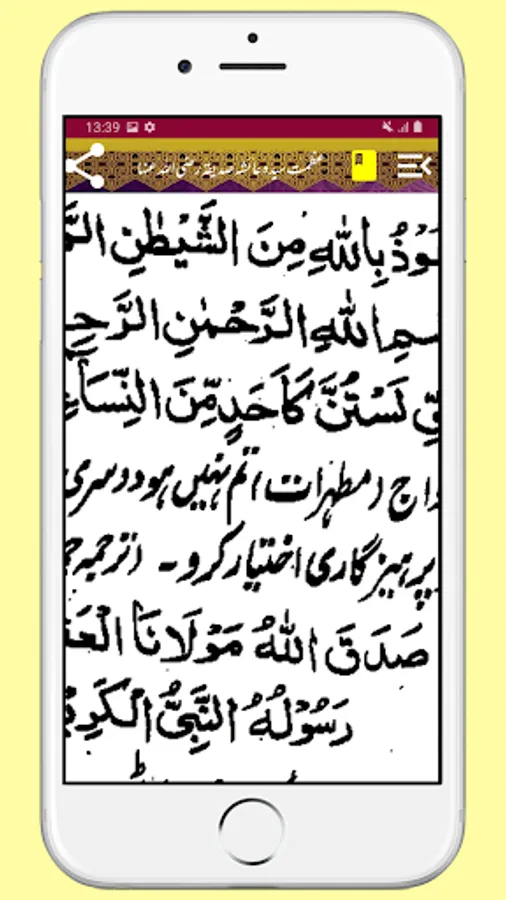 13:39
عظمت سیدہ عائشہ صدیقہ رضی اللہ عنہا
وْذُ بِاللّٰهِ مِنَ الشَّيْطٰنِ
مِ اللّٰهِ الرَّحْمٰنِ الرَّحِ
لَسْتُنَّ كَاَحَدٍ مِّنَ النِّسَآءِ
اج (مطہرات) تم نہیں ہو دوسری
پرہیزگاری اختیار کرو۔ (ترجمہ
صَدَقَ اللّٰهُ مَوْلَانَا الْعَ
رَسُوْلُهُ النَّبِيُّ الْكَرِيْ